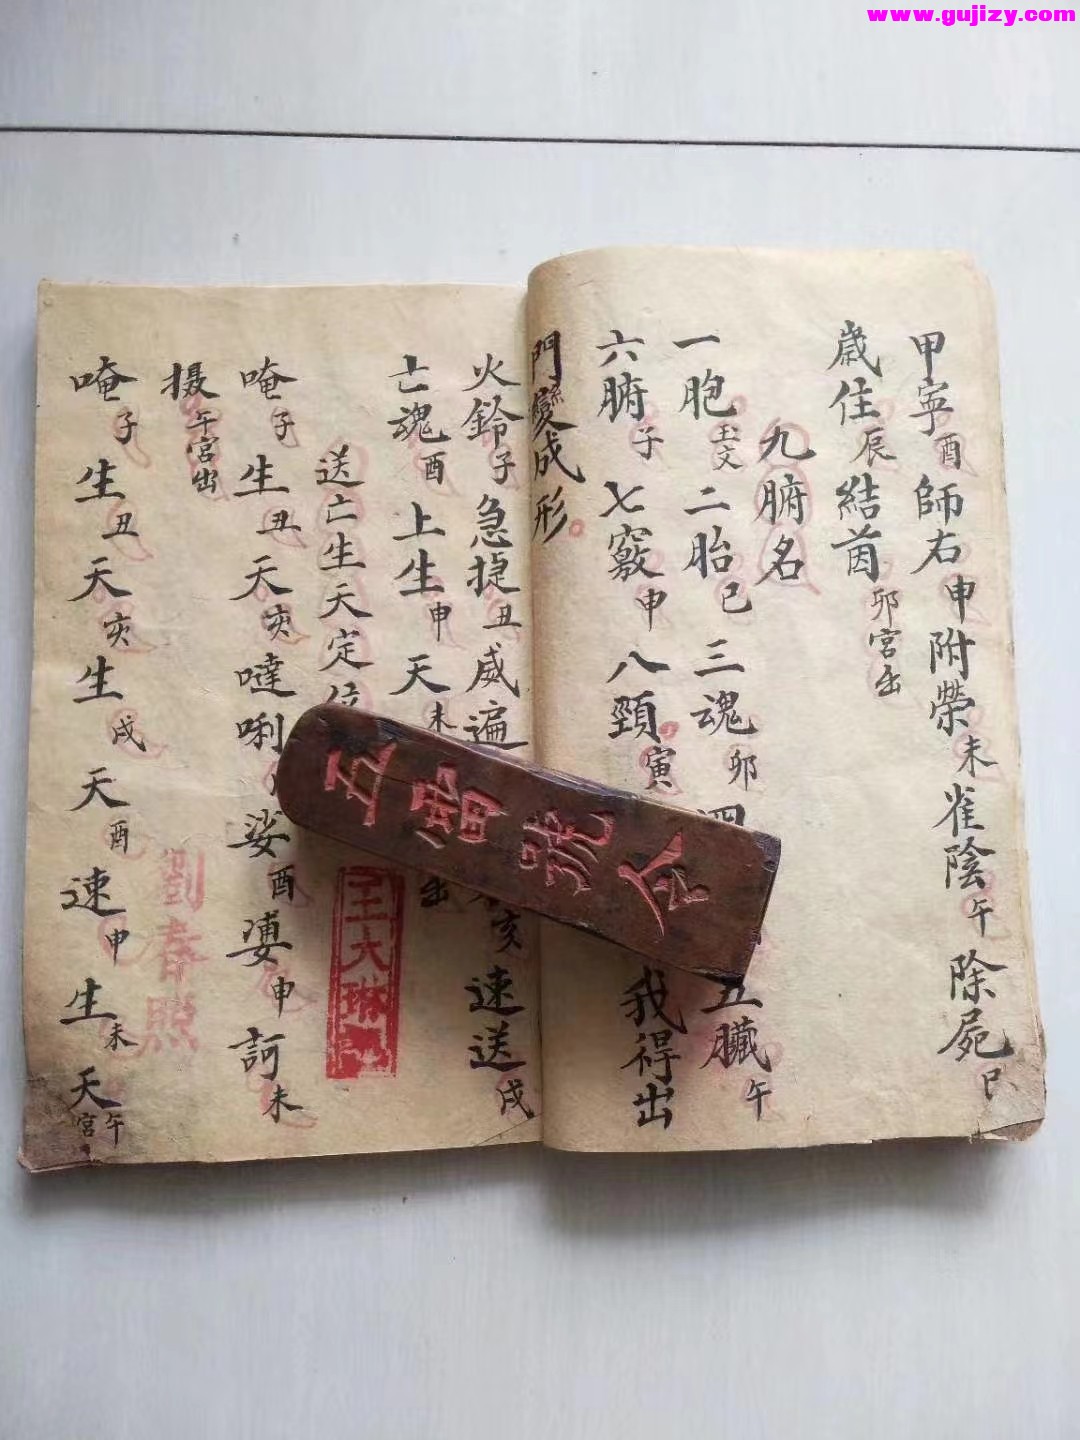 www.gujizy.com
甲寧酉師右申附榮未雀陰午除屍巳
歲住辰結茵卯宮出
九腑名
一胞丑文二胎巳三魂卯四五臟午
六腑子七竅申八頸寅我得出
門變成形
火鈴子急捷丑威遍亥速送戌
亡魂酉上生申天未出
送亡生天定位
唵子生丑天亥噠唎娑酉婆申訶未
摄午宮出
唵子生丑天亥生戌天酉速申生未天午宮
五雷號令
王大琳
劉春照